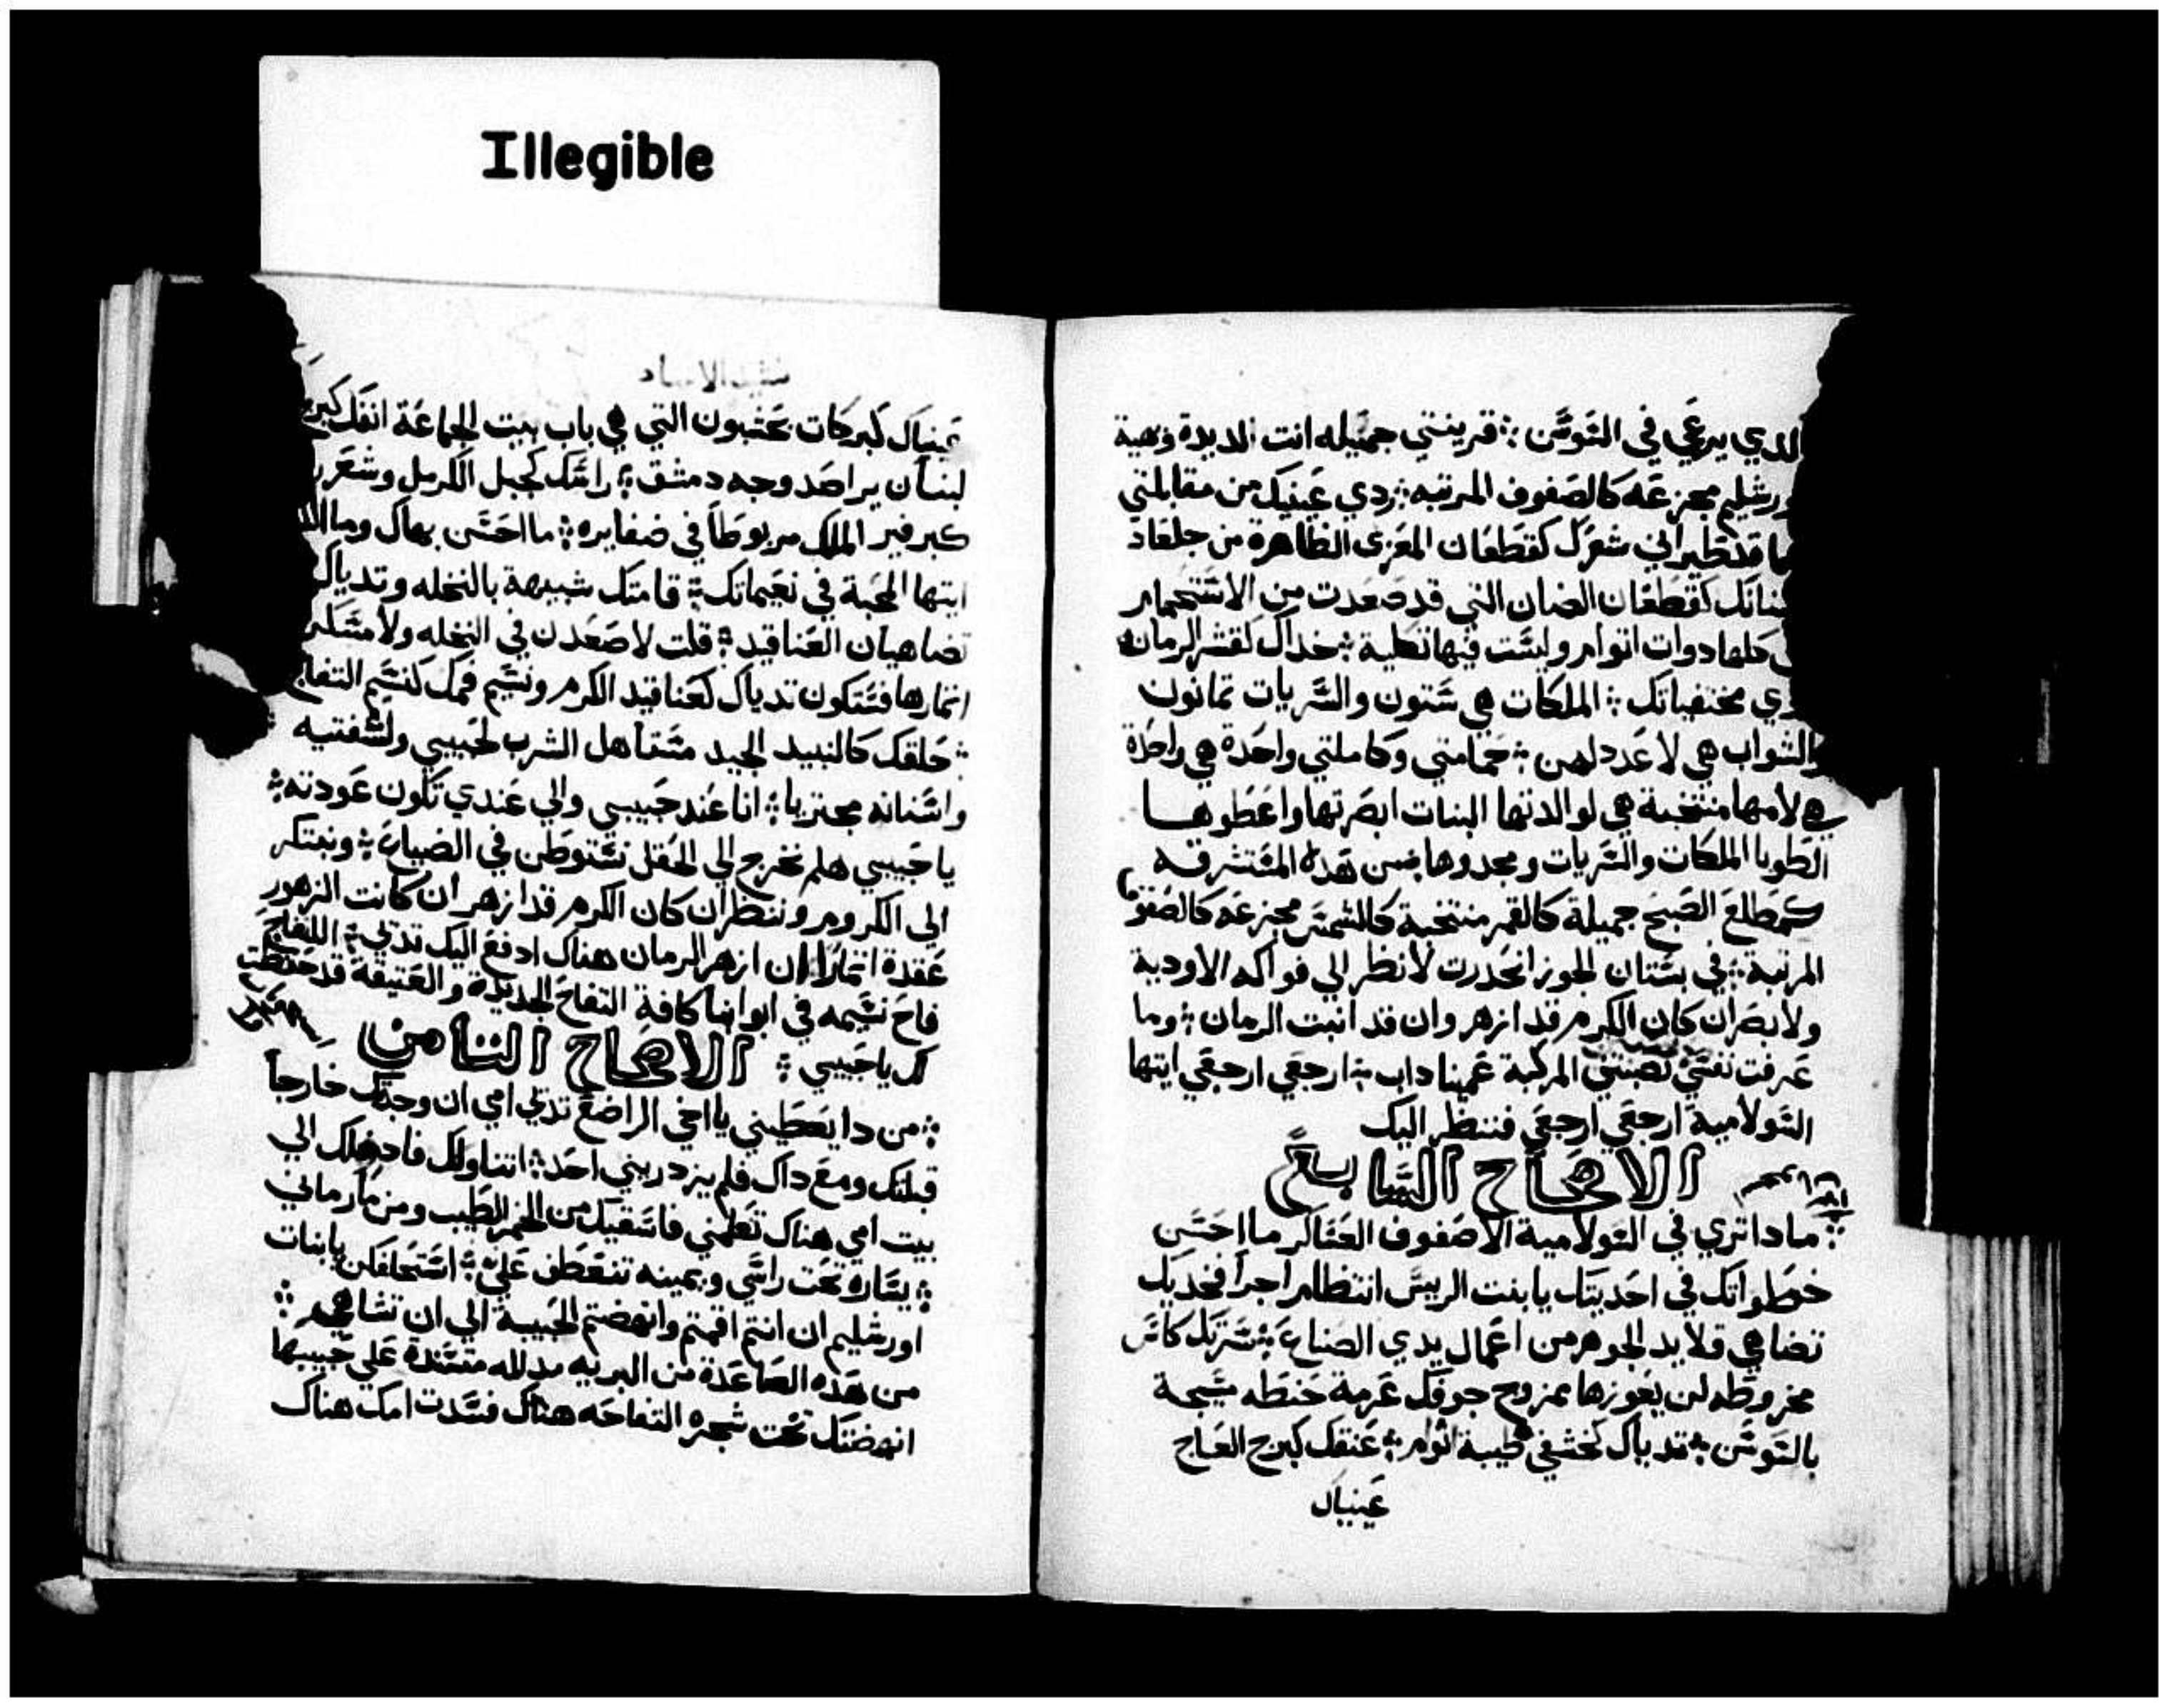 Illegible
الدي يرعي في السوسن ؞ قرينتي جميله انت لديدة وبهية
ورشليم مجزعه كالصفوف المرتبه ؞ ردي عينيك من مقابلتي
قد طيراني شعرك كقطعان المعزى الظاهرة من جلعاد
كقطعان الضان التي قد صعدت من الاستحمام
كلها دوات اتوام وليست فيها تكلية ؞ خداك لقشر الرمان
مختفياتك ؞ الملكات هي ستون والسريات تمانون
والشواب هي لا عدد لهن ؞ حمامتي وكاملتي واحدة هي واحدة
هي لامها منتخبة هي لوالدتها البنات ابصرتها واعطوها
الطوبا الملكات والسريات ومجدوها ؞ من هده المستشرقه
كمطلع الصبح جميلة كالقمر منتخبة كالشمس مجزعه كالصفوف
المرتبة ؞ في بستان الجوز انحدرت لانظر الي فواكه الاودية
ولابصر ان كان الكرم قد ازهر وان قد انبت الرمان ؞ وما
عرفت نفسي نصبتني المركبة عميناداب ؞ ارجعي ارجعي ايتها
السولامية ارجعي ارجعي فننظر اليك
الاصحاح السابع
؞ مادا تري في السولامية الا صفوف العساكر ما احسن
خطواتك في احديتك يا بنت الرييس انتظام اجرا فخديك
تضاهي قلايد الجوهر من اعمال يدي الصناع ؞ سرتك كاس
مخروطه لن يعوزها ممزوج جوفك عرمة حنطه مسيجة
بالسوسن ؞ تدياك كخشفي ظبية اتوام ؞ عنقك كبرج العاج
عينيك
نشيد الانشاد
عينيك كبركات بحشبون التي هي باب بيت الجماعة انفك كبرج
لبنان يراصد وجه دمشق ؞ راسك كجبل الكرمل وشعر
كبرفير الملك مربوطا في ضفايره ؞ ما احسن بهاك وما
ايتها المحبة في نعيماتك ؞ قامتك شبيهة بالنخله وتدياك
تضاهيان العناقيد ؞ قلت لاصعدن في النخله ولامسكن
اتمارها فستكون تدياك كعناقيد الكرم ونسيم فمك كنسيم التفاح
؞ حلقك كالنبيد الجيد مستاهل الشرب لحبيبي ولشفتيه
واسنانه مجتريا ؞ انا عند حبيبي والي عندي تكون عودته ؞
يا حبيبي هلم نخرج الي الحقل نستوطن في الضياع ؞ ونبتكر
الى الكروم وننظر ان كان الكرم قد ازهر ان كانت الزهور
عقدة اتمارا ان ازهر الرمان هناك ادفع اليك تديي ؞ اللفاح
فاح نسيمه في ابوابنا كافة التفاح الجديدة والعتيقة قد حفظت
لك يا حبيبي ؞ الاصحاح التامن
؞ من دا يعطيني يا اخي الراضع تديي امي ان وجدتك خارجا
قبلتك ومع داك فلم يزدريني احد ؞ اتناولك فادخلك الي
بيت امي هناك تعلمني فاسقيك من الخمر المطيب ومن ما رماني
؞ يساره تحت راسي ويمينه تنعطف علي ؞ استحلفكن يا بنات
اورشليم ان انتم اقمتم وانهضتم الحبيبة الي ان تشا هي ؞
من هده الصاعدة من البريه مدلله مستندة علي حبيبها
انهضتك تحت شجره التفاحه هناك فسدت امك هناك